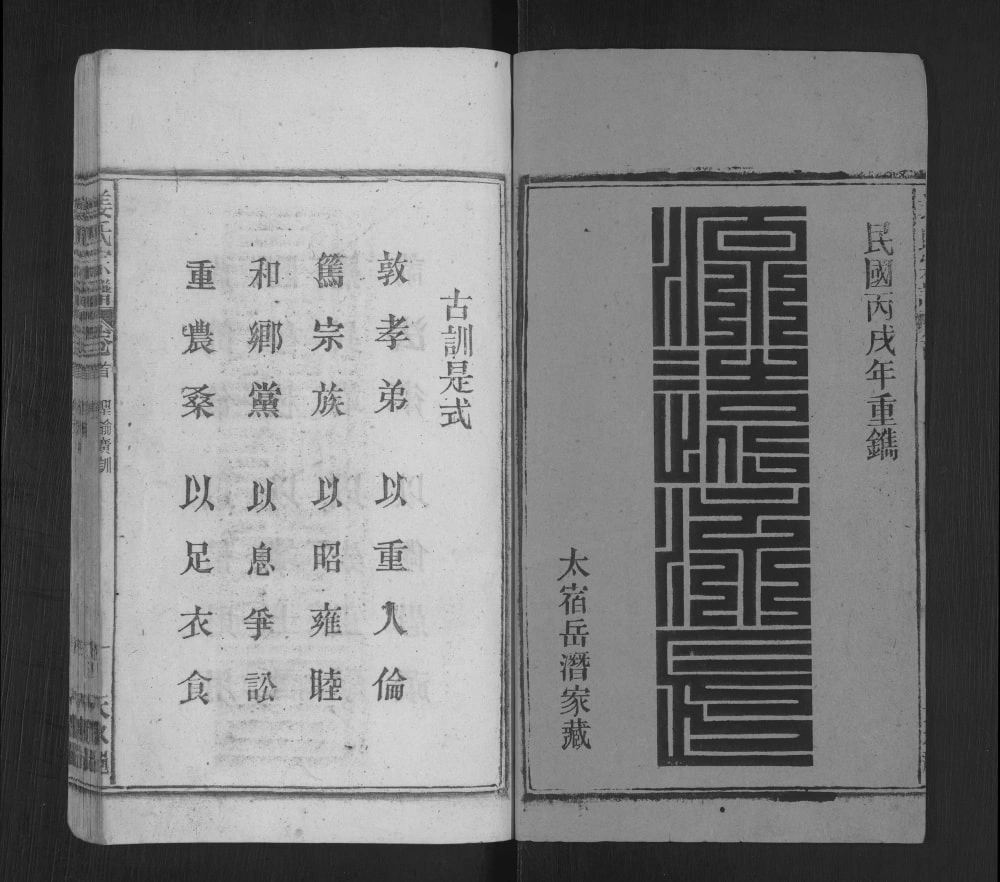 民國丙戌年重鐫
源遠流長
太宿岳潛家藏
古訓是式
敦孝弟以重人倫
篤宗族以昭雍睦
和鄉黨以息爭訟
重農桑以足衣食
姜氏宗譜 卷首 聖諭廣訓 一